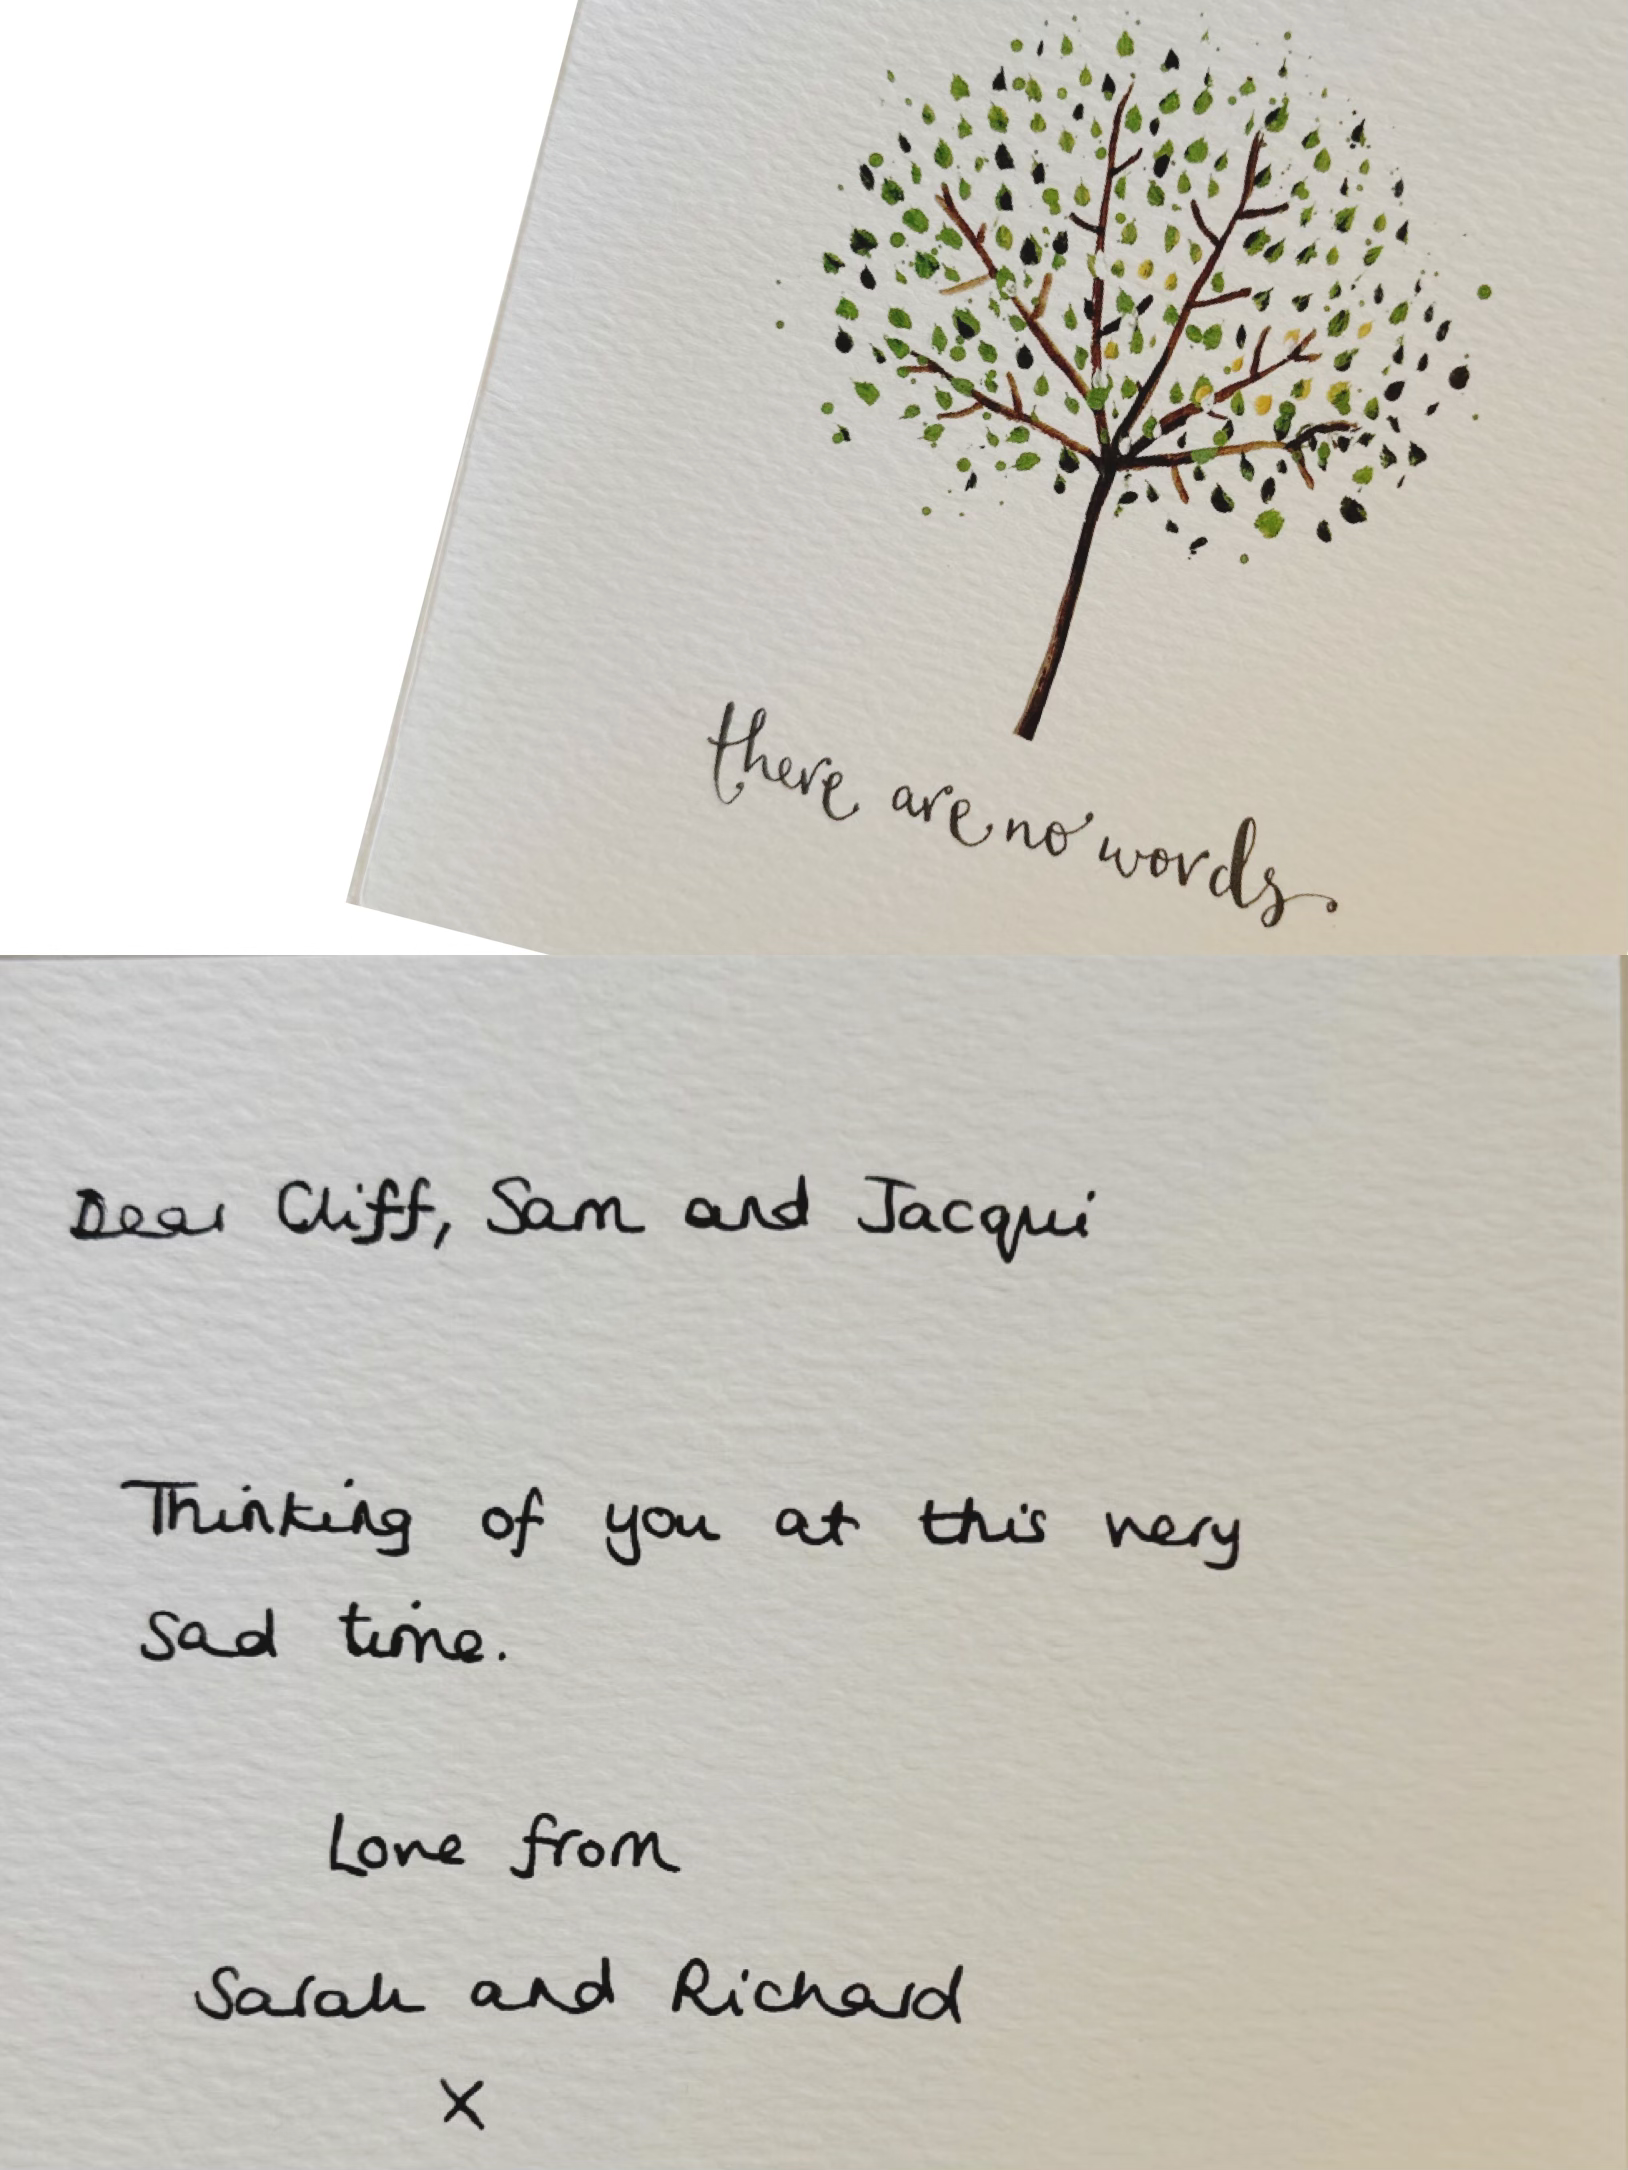 there are no words
Dear Cliff, Sam and Jacqui
Thinking of you at this very
sad time.
Love from
Sarah and Richard
X